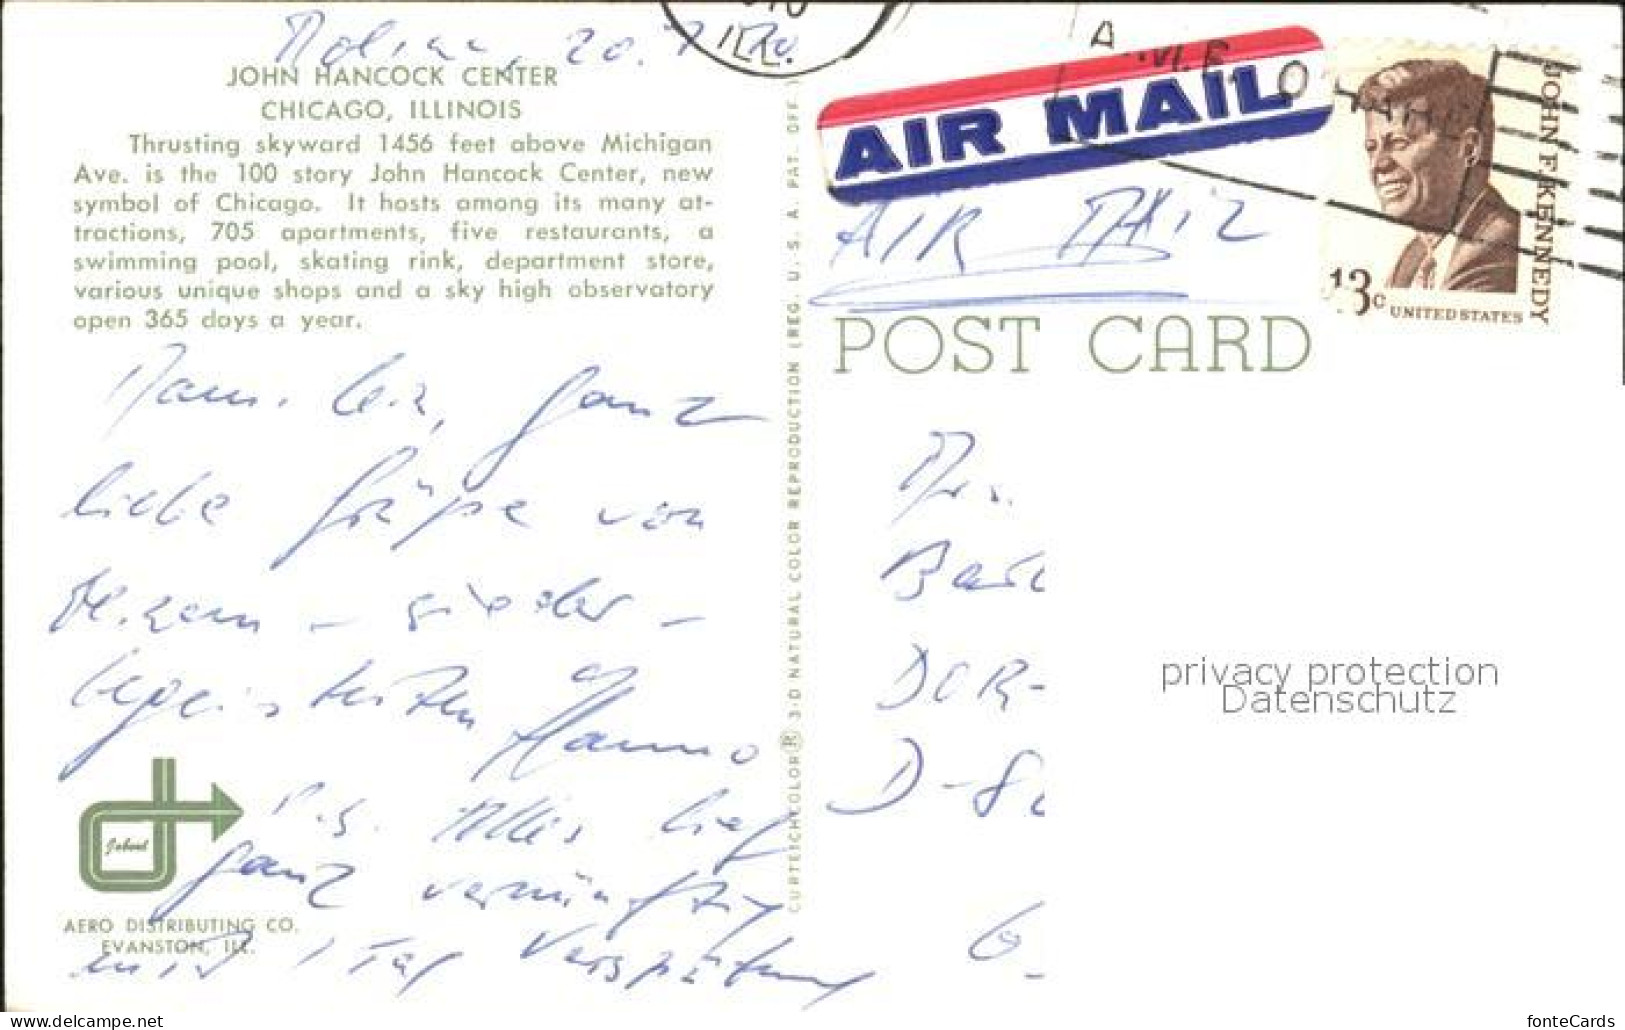 Moline, 20. 7. 70.
JOHN HANCOCK CENTER
CHICAGO, ILLINOIS
Thrusting skyward 1456 feet above Michigan
Ave. is the 100 story John Hancock Center, new
symbol of Chicago. It hosts among its many at-
tractions, 705 apartments, five restaurants, a
swimming pool, skating rink, department store,
various unique shops and a sky high observatory
open 365 days a year.
ganz
liebe Grüße von
- wieder -
begeisterten Hanno
P.S. Alles lief
ganz vernünftig
mit 1 Tag Verspätung
Jobeul
AERO DISTRIBUTING CO.
EVANSTON, ILL.
CURTEICHCOLOR® 3-D NATURAL COLOR REPRODUCTION (REG. U. S. A. PAT. OFF.)
ILL.
AIR MAIL
AIR MAIL
POST CARD
JOHN F. KENNEDY
13c UNITED STATES
DOR-
D-8
6-
privacy protection
Datenschutz
www.delcampe.net/store/bildpostkarten
fonteCards